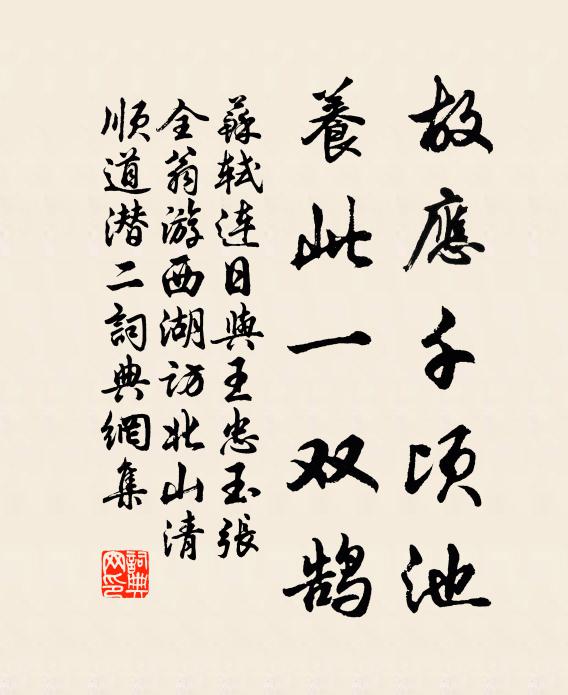 故應千頃池
養此一双鹄
蘇轼连日與王忠玉張
全翁游西湖访北山清
顺道潜二詞典網集
詞典網印